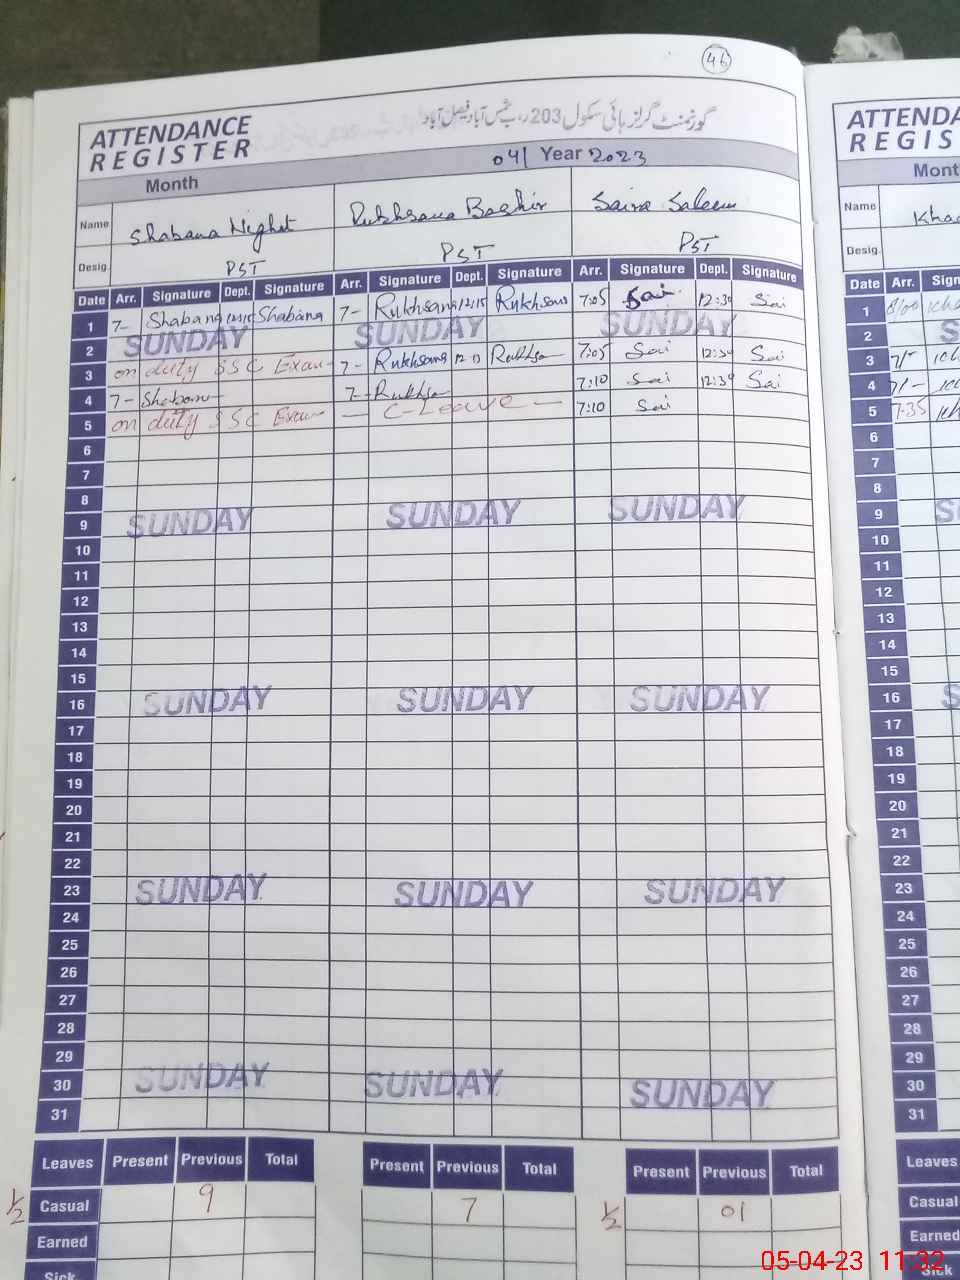 46
گورنمنٹ گرلز ہائی سکول 203 ر،ب شمس آباد فیصل آباد
ATTENDANCE
REGISTER
Month 04 Year 2023
Name Shabana Nighat Rukhsana Bashir Saira Saleem
Desig. PST PST PST
Date Arr. Signature Dept. Signature Arr. Signature Dept. Signature Arr. Signature Dept. Signature
1 7- Shabana 12:15 Shabana 7- Rukhsana 12:15 Rukhsana 7:05 Sai 12:30 Sai
2 SUNDAY SUNDAY SUNDAY
3 on duty SSC Exam 7- Rukhsana Rukhsa 7:05 Sai 12:30 Sai
4 7- Shabana 7- Rukhsa 7:10 Sai 12:30 Sai
5 on duty SSC Exam — C-Leave — 7:10 Sai
6
7
8
9 SUNDAY SUNDAY SUNDAY
10
11
12
13
14
15
16 SUNDAY SUNDAY SUNDAY
17
18
19
20
21
22
23 SUNDAY SUNDAY SUNDAY
24
25
26
27
28
29
30 SUNDAY SUNDAY SUNDAY
31
Leaves Present Previous Total Present Previous Total Present Previous Total
1/2 Casual 9 7 1/2 01
Earned
Sick
ATTENDA
REGIS
Mont
Name Kha
Desig.
Date Arr. Sign
1 8/00
2 S
3 7/-
4 7/-
5 7:35
6
7
8
9 S
10
11
12
13
14
15
16 S
17
18
19
20
21
22
23
24
25
26
27
28
29
30
31
Leaves
Casual
Earned
Sick
05-04-23 11:32